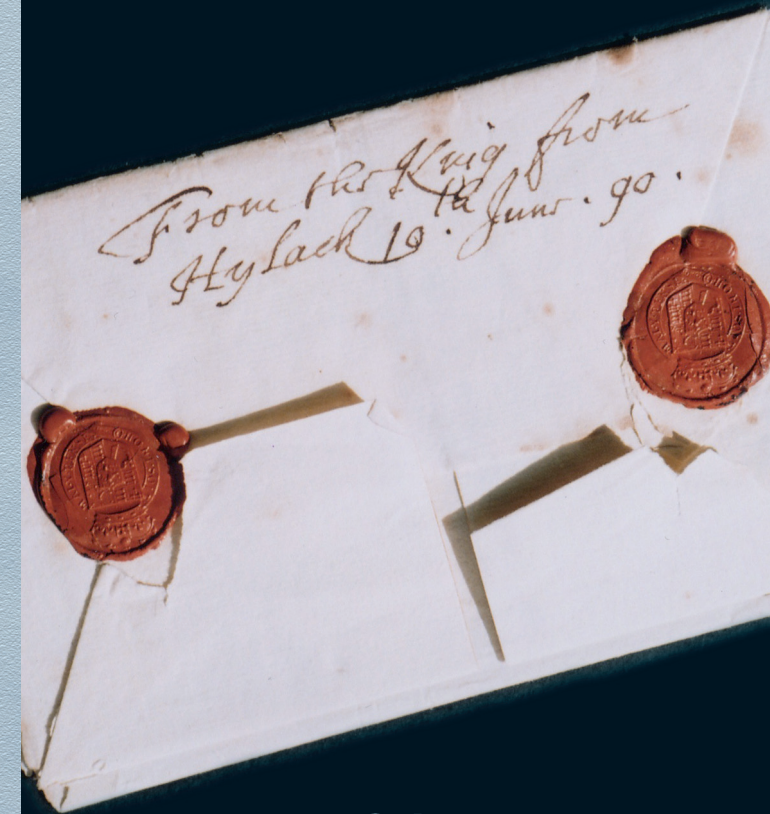 From the King from
Hylack 10.th June. 90.